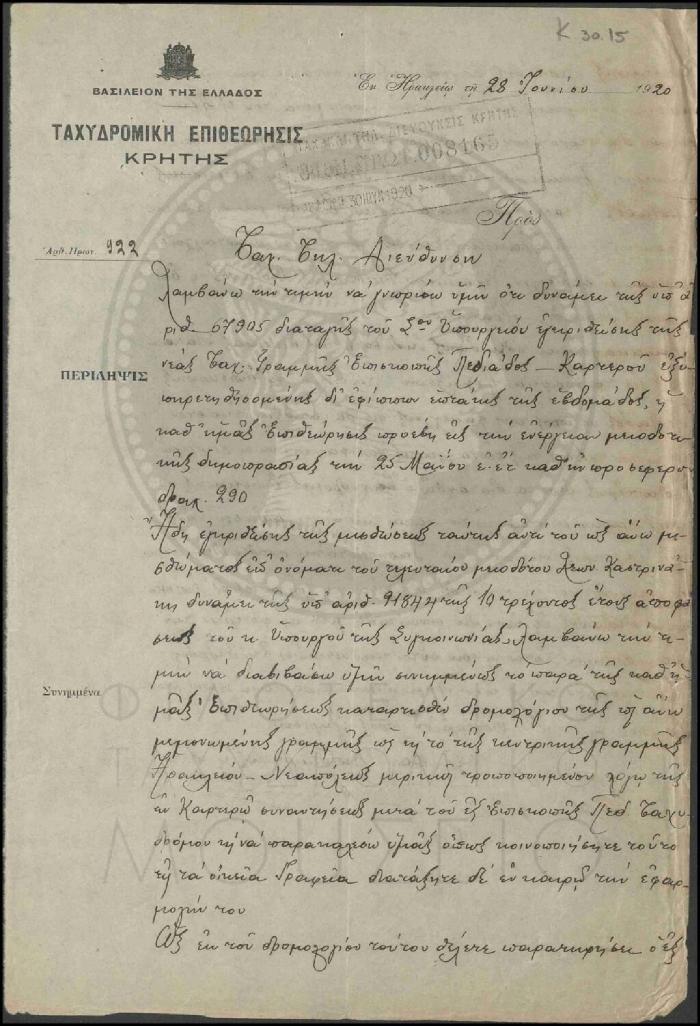 K 30.15
ΒΑΣΙΛΕΙΟΝ ΤΗΣ ΕΛΛΑΔΟΣ
Ἐν Ἡρακλείῳ τῇ 28 Ἰουνίου 1920
ΤΑΧΥΔΡΟΜΙΚΗ ΕΠΙΘΕΩΡΗΣΙΣ
ΚΡΗΤΗΣ
ΤΑΧ. ΤΗΛ. ΔΙΕΥΘΥΝΣΙΣ ΚΡΗΤΗΣ
ΑΡΙΘ. ΠΡΩΤ. 008165
30 ΙΟΥΝ 1920
Πρὸς
Ἀριθ. Πρωτ. 922
Ταχ. Τηλ. Διεύθυνσιν
Λαμβάνω τὴν τιμὴν νὰ γνωρίσω ὑμῖν ὅτι δυνάμει τῆς ὑπ' ἀ
ριθ. 67905 διαταγῆς τοῦ Σου Ὑπουργείου ἐγκριθείσης τῆς
νέας Ταχ. Γραμμῆς Ἐπισκοπῆς Πεδιάδος – Καρτεροῦ ἐξυ
ΠΕΡΙΛΗΨΙΣ
πηρετηθησομένης δι' ἐφίππων ἑπτάκις τῆς ἑβδομάδος, ἡ
καθ' ἡμᾶς Ἐπιθεώρησις προέβη εἰς τὴν ἐνέργειαν μειοδοτι
κῆς δημοπρασίας τὴν 25 Μαΐου ἐ.ἔ. καθ' ἣν προσεφέρον
δραχ. 290
Ἤδη ἐγκριθείσης τῆς μισθώσεως ταύτης ἀντὶ τοῦ ὡς ἄνω μι
σθώματος ἐπ' ὀνόματι τοῦ τελευταίου μειοδότου Λεων. Καστρινά
κη δυνάμει τῆς ὑπ' ἀριθ. 91844 τῆς 10 τρέχοντος ἔτους ἀποφά
σεως τοῦ κ. Ὑπουργοῦ τῆς Συγκοινωνίας, λαμβάνω τὴν τι
μὴν νὰ διαβιβάσω ὑμῖν συνημμένως τὸ παρὰ τῆς καθ' ἡ
Συνημμένα
μᾶς Ἐπιθεωρήσεως καταρτισθὲν δρομολόγιον τῆς ὡς ἄνω
μεμονωμένης γραμμῆς ὡς κ τὸ τῆς κεντρικῆς γραμμῆς
Ἡρακλείου – Νεαπόλεως μερικῶς τροποποιημένον λόγῳ τῆς
ἐν Καρτερῷ συναντήσεως μετὰ τοῦ ἐξ Ἐπισκοπῆς Πεδ. Ταχυ
δρόμου κ νὰ παρακαλέσω ὑμᾶς ὅπως κοινοποιήσητε τοῦτο
εἰς τὰ οἰκεῖα Γραφεῖα διατάξητε δὲ ἐν καιρῷ τὴν ἐφαρ
μογήν του
Ὡς ἐκ τοῦ δρομολογίου τούτου θέλετε παρατηρήσει ὁ ἐξ